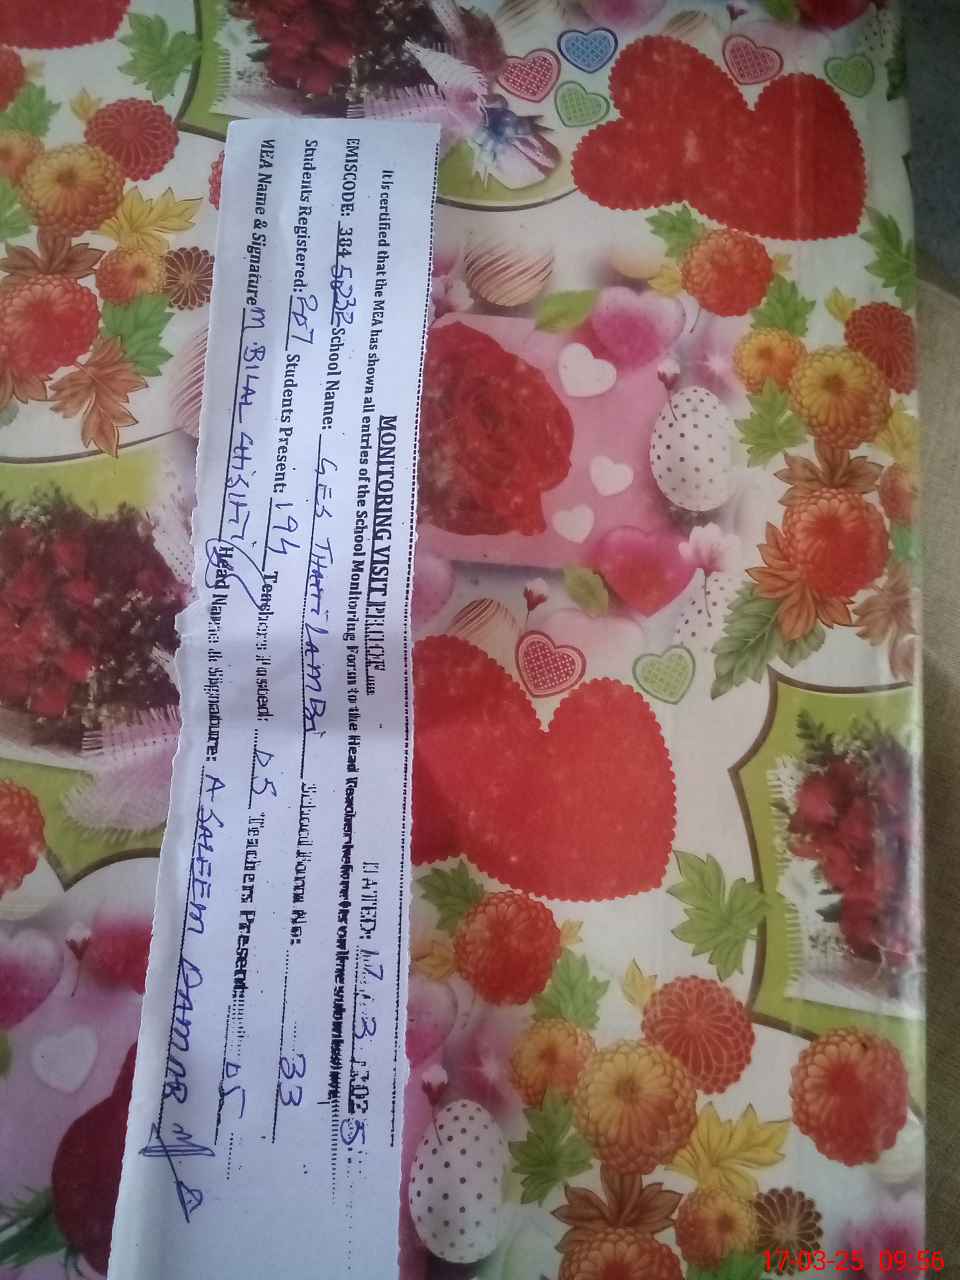 MONITORING VISIT PROOF
DATED: 17 / 3 / 2025
It is certified that the MEA has shown all entries of the School Monitoring Form to the Head Teacher before
EMISCODE: School Name: GES THATTI LAMBA School Form No: 33
Students Registered: 207 Students Present: 194 Teachers Posted: 05 Teachers Present: 05
MEA Name & Signature M. BILAL CHISHTI Head Name & Signature: A SALEEM
17-03-25 09:56